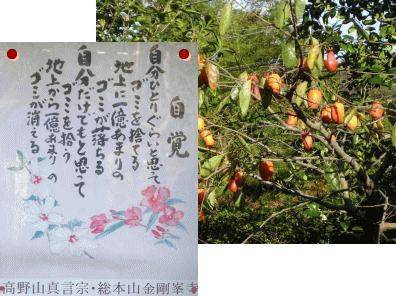 自覚
自分ひとりぐらいと思って
ゴミを捨てる
地上に一億あまりの
ゴミが落ちる
自分だけでもと思って
ゴミを拾う
地上から一億あまりの
ゴミが消える
高野山真言宗・総本山金剛峯寺